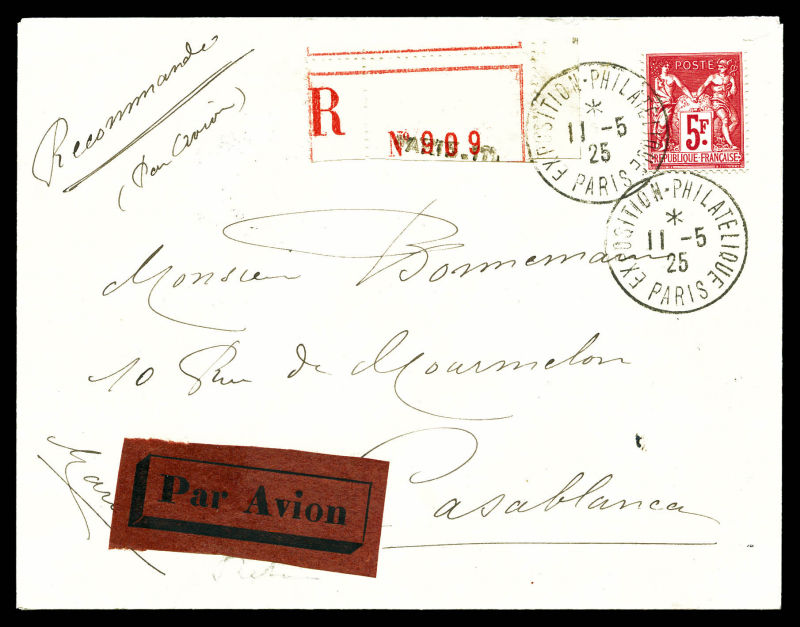 Recommandé
(Par Avion)
R
№ 909
EXPOSITION-PHILATELIQUE
*
11 -5
25
PARIS
POSTE
5F
REPUBLIQUE FRANÇAISE
EXPOSITION-PHILATELIQUE
*
11 -5
25
PARIS
Monsieur Bonnemain
10 Rue de Mourmelon
Casablanca
Maroc
Par Avion